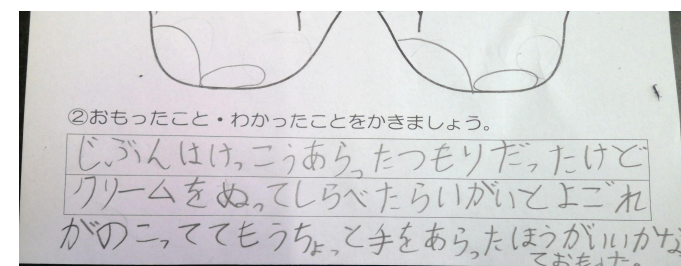 ②おもったこと・わかったことをかきましょう。
じぶんはけっこうあらったつもりだったけど
クリームをぬってしらべたらいがいとよごれ
がのこっててもうちょっと手をあらったほうがいいかな
ておもった。